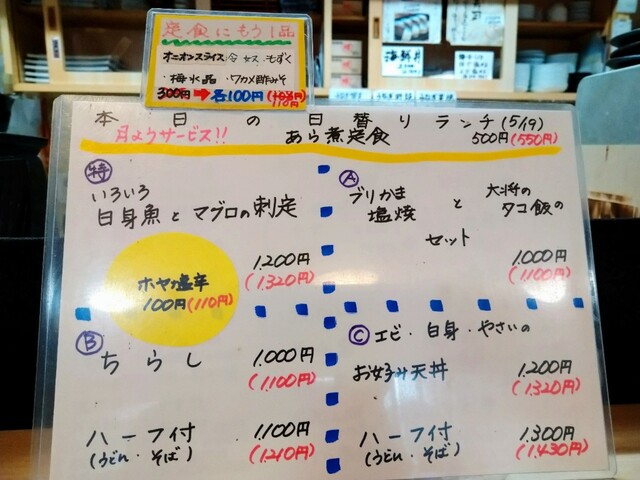 定食にもう1品
オニオンスライス 冷奴 もずく
梅水晶 ワカメ酢みそ
300円→各100円 110円
海鮮丼
本日の日替りランチ(5/19)
月ようサービス!! あら煮定食 500円(550円)
特
いろいろ
白身魚とマグロの刺定
1,200円
(1,320円)
ホヤ塩辛
100円(110円)
A
ブリかま塩焼と大将のタコ飯の
セット
1,000円
(1,100円)
B
ちらし 1,000円
(1,100円)
ハーフ付 1,100円
(うどん・そば) (1,210円)
C エビ・白身・やさいの
お好み天丼 1,200円
(1,320円)
ハーフ付 1,300円
(うどん・そば) (1,430円)